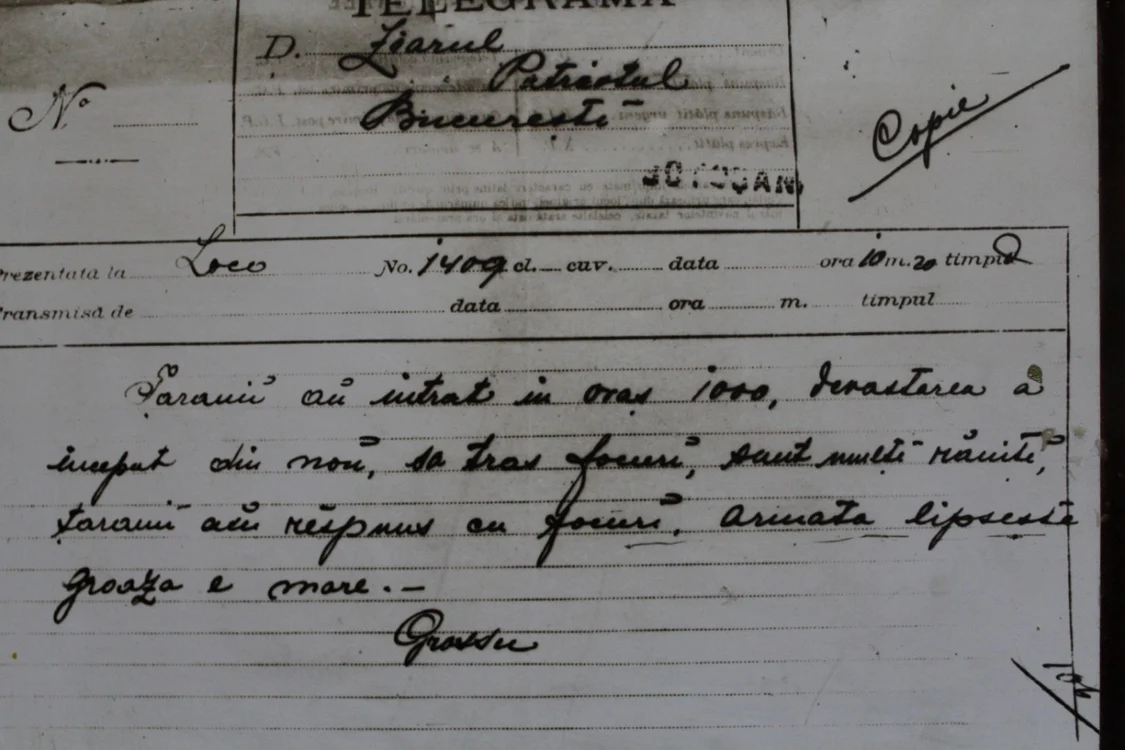 TELEGRAMA
D. Ziarul
Patriotul
Bucureștĭ
Nº
Copie
Prezentata la Loco No. 1409 cl. cuv. data ora 10 m. 20 timpul
Transmisă de data ora m. timpul
Țaraniĭ aŭ intrat in oraș 1000, devastarea a
inceput din noŭ, sa tras focurĭ, sunt mulțĭ rănițĭ,
țaraniĭ aŭ răspuns cu focurĭ. Armata lipseste
groaza e mare. —
Grossu